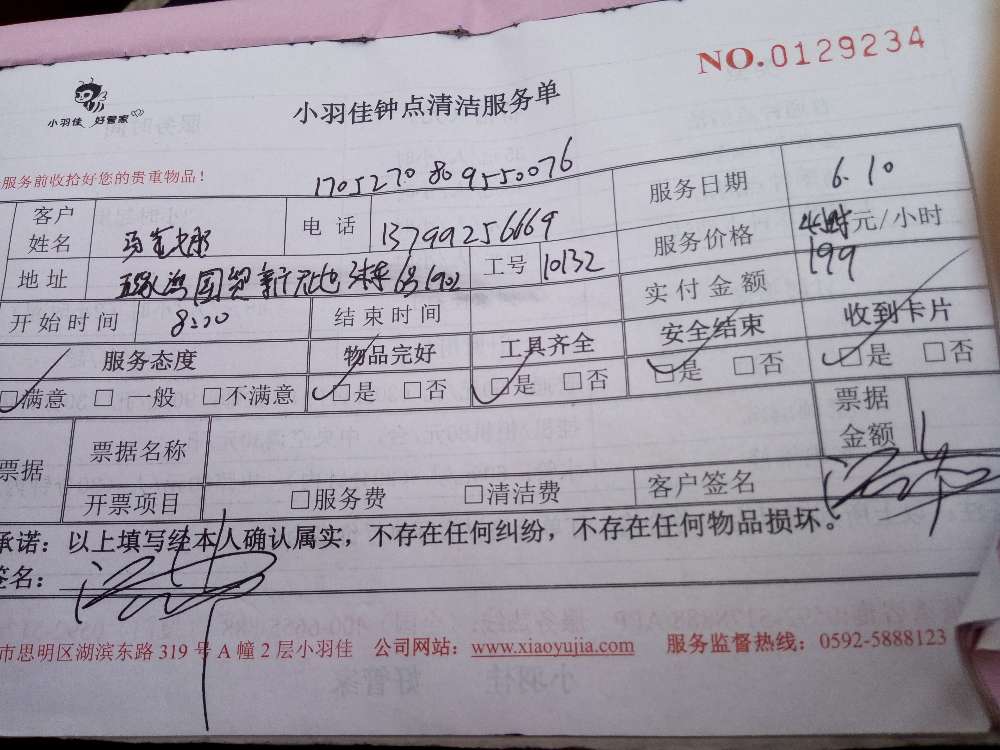 NO.0129234
小羽佳 好管家
小羽佳钟点清洁服务单
服务前收拾好您的贵重物品！
1705270869550076
客户姓名 电话 13799256669 服务日期 6.10
地址 国贸新天地 1902 工号 10132 服务价格 4小时元/小时
开始时间 8:20 结束时间 实付金额 199
服务态度 物品完好 工具齐全 安全结束 收到卡片
□满意 □一般 □不满意 □是 □否 □是 □否 □是 □否 □是 □否
票据 票据名称 票据金额
开票项目 □服务费 □清洁费 客户签名
承诺：以上填写经本人确认属实，不存在任何纠纷，不存在任何物品损坏。
签名：
市思明区湖滨东路 319 号 A 幢 2 层小羽佳 公司网站：www.xiaoyujia.com 服务监督热线：0592-5888123